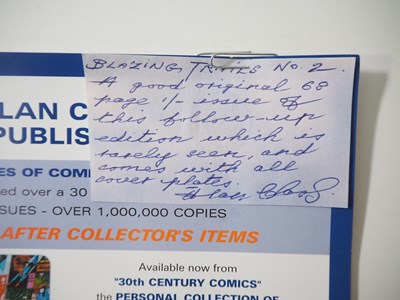 BLAZING TRAILS No. 2.
A good original 68
page 1/- issue of
this follow-up
edition which is
rarely seen, and
comes with all
cover plates.
Alan Class
LAN C
PUBLIS
ES OF COMI
ed over a 30
SUES - OVER 1,000,000 COPIES
AFTER COLLECTOR'S ITEMS
Available now from
"30th CENTURY COMICS"
the PERSONAL COLLECTION OF